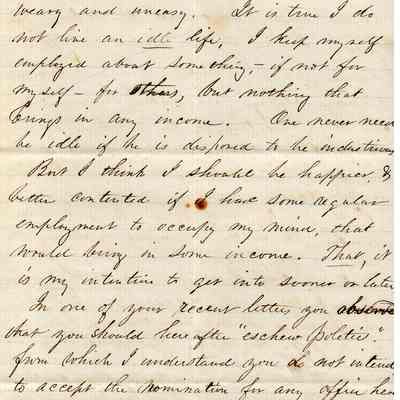 weary and uneasy. It is true I do
not live an idle life, I keep myself
employed about something, – if not for
myself – for others, but nothing that
brings in any income. One never need
be idle if he is disposed to be industrious
But I think I should be happier, &
better contented if I had some regular
employment to occupy my mind, that
would bring in some income. That, it
is my intention to get into sooner or later
In one of your recent letters you observe
that you should hereafter "eschew politics".
from which I understand you do not intend
to accept the nomination for any office here